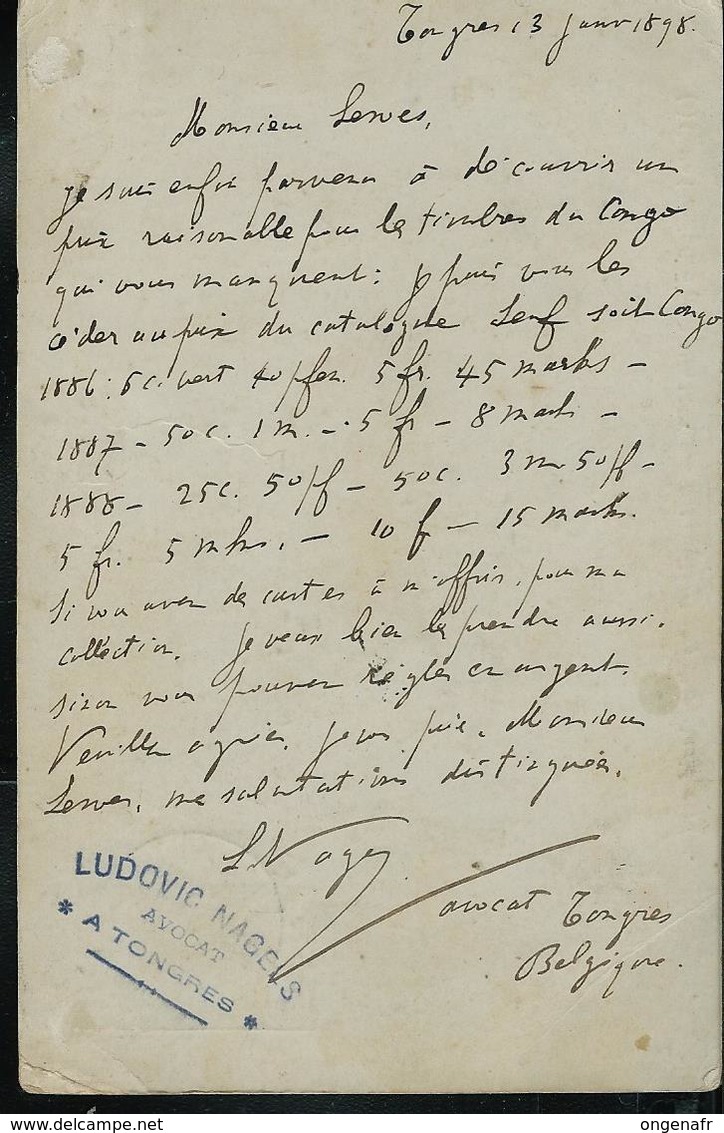 Tongres 13 janv 1898.
Monsieur Serves,
je suis enfin parvenu à découvrir un
prix raisonable pour les timbres du Congo
qui vous manquent: je puis vous les
céder au prix du catalogue Senf soit Congo
1886: 5c. vert 40 pfen. 5 fr. 45 marks –
1887 – 50c. 1 m. – 5 fr – 8 marks –
1888 – 25c. 50 pf – 50c. 3 m 50 pf –
5 fr. 5 mks. – 10 f – 15 marks.
Si vous avez des cartes à m'offrir, pour ma
collection. je veux bien les prendre aussi.
sinon vous pouvez régler en argent.
Veuillez agréer, je vous prie, Monsieur
Serves, mes salutations distinguées.
L Nagels
avocat Tongres
Belgique.
LUDOVIC NAGELS
AVOCAT
* A TONGRES *
ongenafr